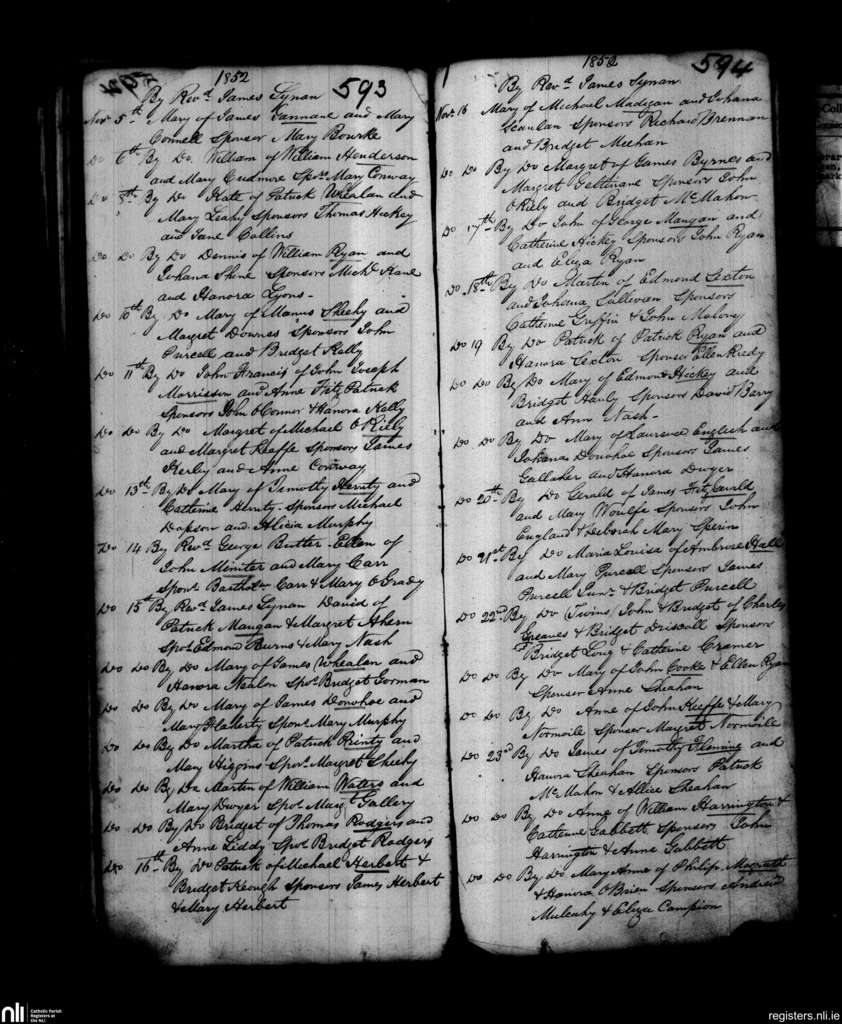 1852
593
By Revd. James Synan
Novr. 5th Mary of James Vannane and Mary
Connell Sponsor Mary Bourke
Do 6th By Do. William of William Henderson
and Mary Cudmore Spr. Mary Conway
Do 8th By Do Kate of Patrick Whealan and
Mary Leahy Sponsors Thomas Hickey
and Jane Collins
Do Do By Do Dennis of William Ryan and
Johana Shine Sponsors Michl. Kane
and Hanora Lyons -
Do 10th By Do Mary of Manus Sheehy and
Margret Downes Sponsors John
Purcell and Bridget Kelly
Do 11th By Do John Francis of John Joseph
Morrison and Anne Fitz Patrick
Sponsors John O Connor & Hanora Kelly
Do Do By Do Margret of Michael O Kiely
and Margret Keaffe Sponsors James
Kerley and Anne Conway
Do 13th By Do Mary of Timothy and
Catherine Sponsors Michael
and Alicia Murphy
Do 14 By Revd. George Butler Ellen of
John Miniter and Mary Carr
Sponr. Bartholw Carr & Mary O Grady
Do 15th By Revd. James Synan David of
Patrick Maugan & Margret Ahern
Spor. Edmond Burns & Mary Nash
Do Do By Do Mary of James Whealan and
Hanora Nealon Spr. Bridget Gorman
Do Do By Do Mary of James Donohoe and
Mary Flaherty Sponr. Mary Murphy
Do Do By Do Martha of Patrick Printy and
Mary Higgins Sponr. Margret Sheehy
Do Do By Do Martin of William Waters and
Mary Dwyer Spor. Margt. Gallery
Do Do By Do Bridget of Thomas Rodgers and
Anne Liddy Spor. Bridget Rodgers
Do 16th By Do Patrick of Michael Herbert &
Bridget Keough Sponsors James Herbert
& Mary Herbert
1852
594
By Revd. James Synan
Novr. 16 Mary of Michael Madigan and Johana
Scanlan Sponsors Richard Brennan
and Bridget Meehan
Do Do By Do Margret of James Byrnes and
Margret Sponsors John
O Kiely and Bridget McMahon
Do 17th By Do John of George Mangan and
Catherine Hickey Sponsors John Ryan
and Eliza Ryan
Do 18th By Do Martin of Edmond Sexton
and Johana Sullivan Sponsors
Catherine Griffin & John Malony
Do 19 By Do Patrick of Patrick Ryan and
Hanora Sexton Sponsor Ellen Reedy
Do Do By Do Mary of Edmond Hickey and
Bridget Hanly Sponsors David Barry
and Ann Nash -
Do Do By Do Mary of Laurence English and
Johana Donohoe Sponsors James
Gallaher and Hanora Dwyer
Do 20th By Do Gerald of James Fitz Gerald
and Mary Woulfe Sponsors John
England & Deborah Mary Sperin
Do 21st By Do Maria Louise of Ambrose Hall
and Mary Purcell Sponsors James
Purcell Junr. & Bridget Purcell
Do 22nd. By Do (Twins) John & Bridget of Charles
Greaves & Bridget Driscoll Sponsors
Bridget Long & Catherine Cramer
Do Do By Do Mary of John Cooke & Ellen Ryan
Sponsor Anne Sheahan
Do Do By Do Anne of John Keeffe & Mary
Normoile Sponsor Margret Normoile
Do 23rd By Do James of Timothy Fleming and
Hanora Sheahan Sponsors Patrick
Mc Mahon & Allice Sheahan
Do Do By Do Anne of William Harrington &
Catherine Gabbott Sponsors John
Harrington & Anne Gabbett
Do Do By Do Mary Anne of Philip Magrath
& Hanora O Brien Sponsors Andrew
Mulcahy & Eliza Campion
nli
Catholic Parish
Registers at
the NLI
registers.nli.ie